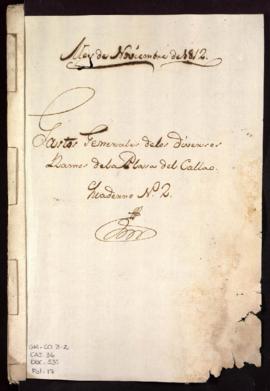 Mes de Noviembre de 1812.
Gastos Generales de los diversos
Ramos de la Plasa del Callao.
Quaderno N.º 2.
CAJ. 36
Fol. 17